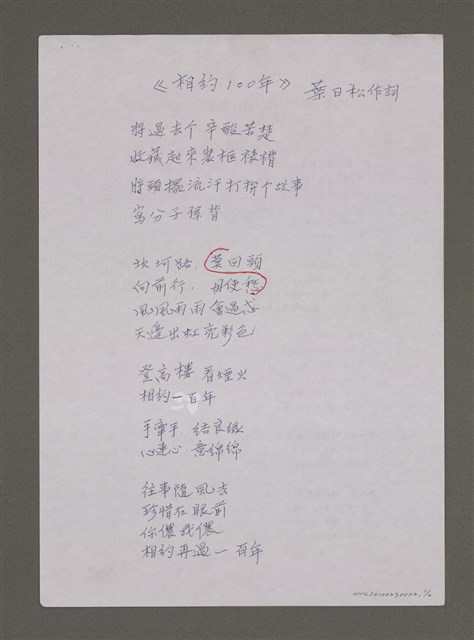 《相約100年》 葉日松作詞
將過去个辛酸苦楚
收藏起來裝框裱褙
將頭擺流汗打拚个故事
寫分子孫背
坎坷路，莫回頭
向前行，毋使愁
風風雨雨會過忒
天邊出虹亮彩色
登高樓 看煙火
相約一百年
手牽手 結良緣
心連心 意綿綿
往事隨風去
珍惜在眼前
你儂我儂
相約再過一百年